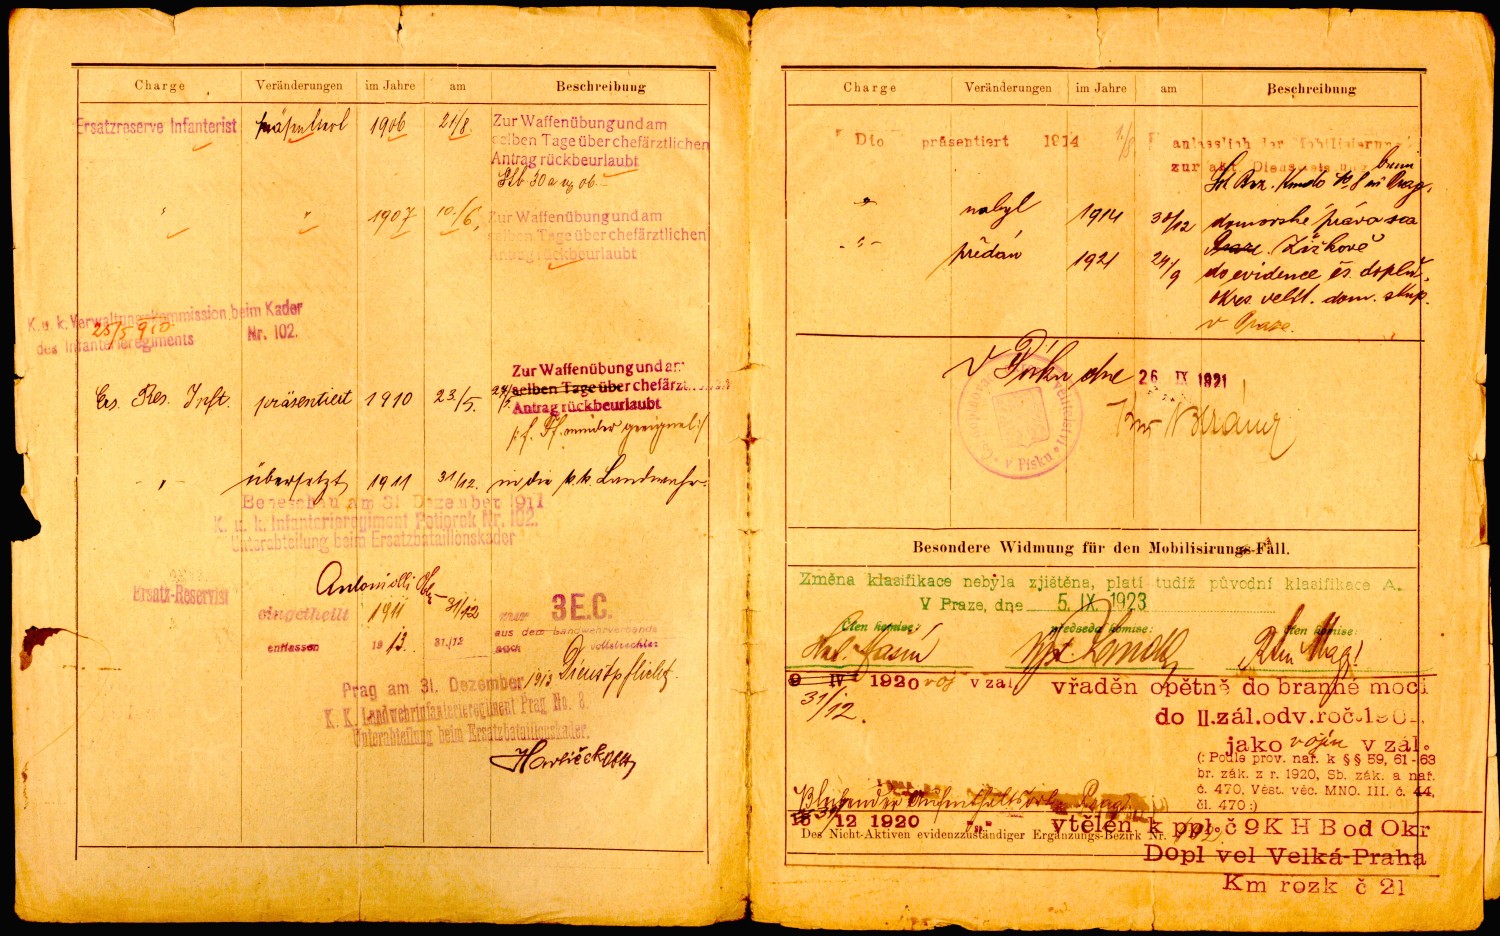 Charge Veränderungen im Jahre am Beschreibung
Ersatzreserve Infanterist präsentiert 1906 21/8. Zur Waffenübung und am
selben Tage über chefärztlichen
Antrag rückbeurlaubt
" " 1907 10./6. Zur Waffenübung und am
selben Tage über chefärztlichen
Antrag rückbeurlaubt
K. u. k. Verwaltungskommission beim Kader
25/5 910
des Infanterieregiments Nr. 102.
Zur Waffenübung und am
Ers. Res. Inft. präsentiert 1910 23/5. selben Tage über chefärzt
Antrag rückbeurlaubt
minder geeignet
" übersetzt 1911 31/12. in die k.k. Landwehr.
Beneschau am 31. Dezember 1911
K. u. k. Infanterieregiment Potiorek Nr. 102.
Unterabteilung beim Ersatzbataillonskader
Ersatz-Reservist
eingetheilt 1911 31/12 zur 3 E.C.
entlassen 1913. 31./12 aus dem Landwehrverbande
nach vollstreckter
Dienstpflicht.
Prag am 31. Dezember 1913
K. K. Landwehrinfanterieregiment Prag No. 8.
Unterabteilung beim Ersatzbataillonskader.
Charge Veränderungen im Jahre am Beschreibung
Dto präsentiert 1914 1./8 anlässlich der Mobilisierung
zur akt. Dienstleistung beim
" nabyl 1914 30/12 domovské právo na
Praze. Žižkově
" předán 1921 24/9 do evidence čs. doplň.
okres. velit. dom. skup.
v Praze.
V Písku, dne 26 IX 1921
v Písku
Besondere Widmung für den Mobilisirungs-Fall.
Změna klasifikace nebyla zjištěna, platí tudíž původní klasifikace A.
V Praze, dne 5. IX. 1923
Člen komise: předseda komise: člen komise:
9 IV 1920 voj v zál. vřaděn opětně do branné moci
31/12. do II.zál.odv.roč.
jako vojín v zál.
(: Podle prov. nař. k §§ 59, 61-63
br. zák. z r. 1920, Sb. zák. a nař.
č. 470, Věst. věc. MNO. III. č. 44,
čl. 470 :)
Bleibender Aufenthaltsort: Prag
31/12 1920 " vtělen k ppl. č 9 K H B od Okr
Des Nicht-Aktiven evidenzzuständiger Ergänzungs-Bezirk Nr.
Dopl vel Velká-Praha
Km rozk č 21